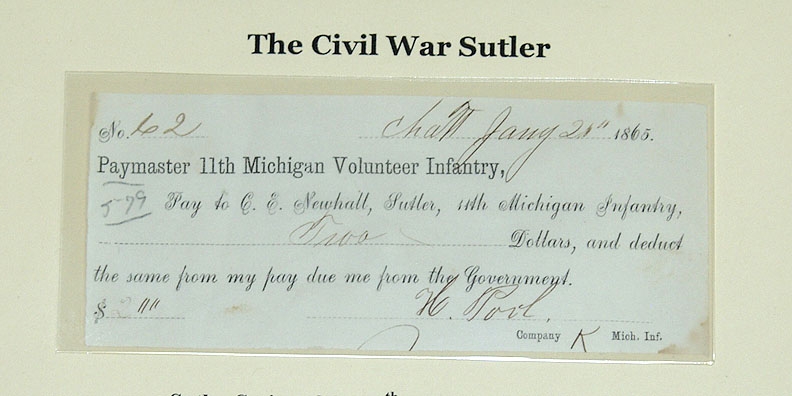 The Civil War Sutler
No. 62 Chatt Jany 1865.
Paymaster 11th Michigan Volunteer Infantry,
579 Pay to C. E. Newhall, Sutler, 11th Michigan Infantry,
Two Dollars, and deduct
the same from my pay due me from the Government.
$ 2 ""
H. Pool.
Company K Mich. Inf.